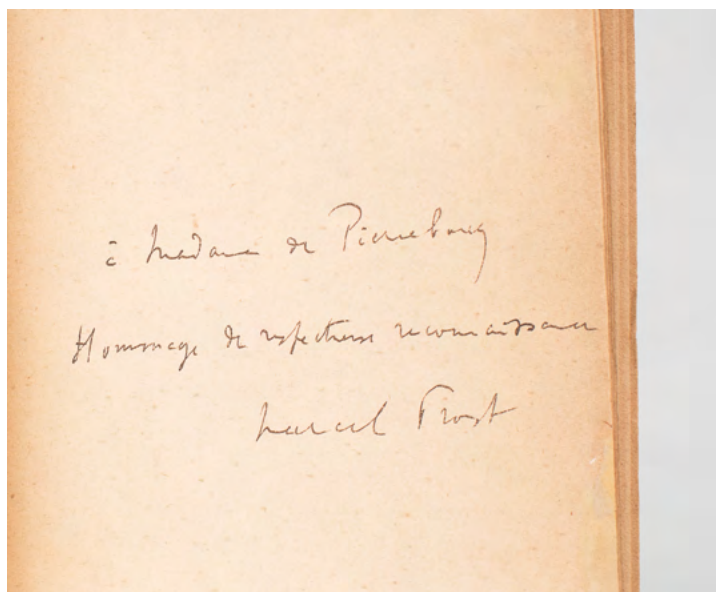 à Madame de Pierrebourg
Hommage de respectueuse reconnaissance
Marcel Proust